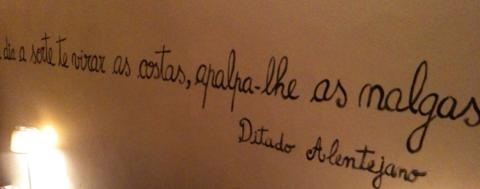 dia a sorte te virar as costas, apalpa-lhe as nalgas
Ditado Alentejano